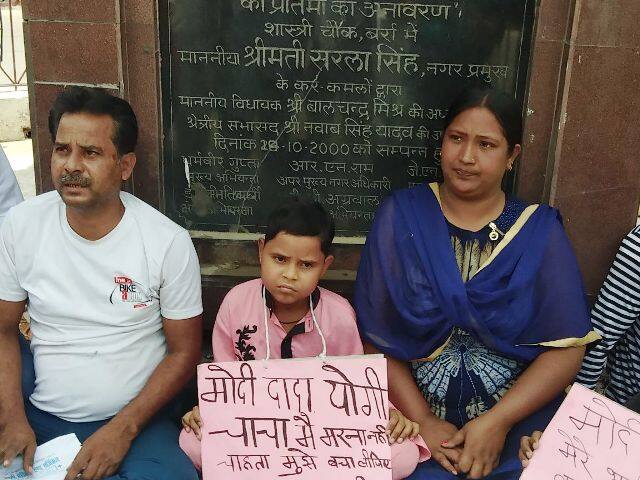 की प्रतिमा का अनावरण
शास्त्री चौक, बर्रा में
माननीया श्रीमती सरला सिंह, नगर प्रमुख
के कर-कमलों द्वारा
माननीय विधायक श्री बालचन्द्र मिश्र की
क्षेत्रीय सभासद श्री नवाब सिंह यादव की
दिनांक 10-2000 को सम्पन्न
धर्मवीर गुप्ता आर.एन.राम जे.एन
मुख्य अभियन्ता अपर मुख्य नगर अधिकारी
अग्रवाल
the
BIKE
मोदी दादा योगी
चाचा मै मरना नहीं
चाहता मुझे बचा लीजिए